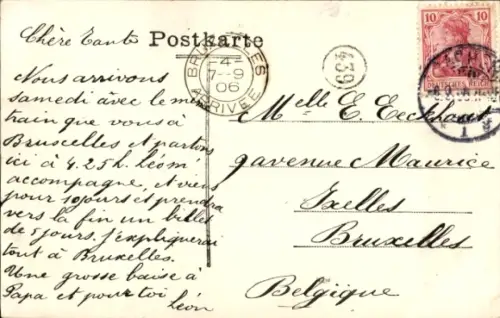 Chère Tante
Postkarte
Nous arrivons
samedi avec le même
train que vous à
Bruxelles et partons
ici à 4.25h. Léon m'
accompagne, et viens
pour 10 jours et prendra
vers la fin un billet
de 5 jours. J'expliquerai
tout à Bruxelles.
Une grosse baise à
Papa et pour toi
Léon
BRUXELLES
4
7-9
06
ARRIVEE
439
10
DEUTSCHES REICH
Melle E. Eeckhout
9 avenue Maurice
Ixelles
Bruxelles
Belgique